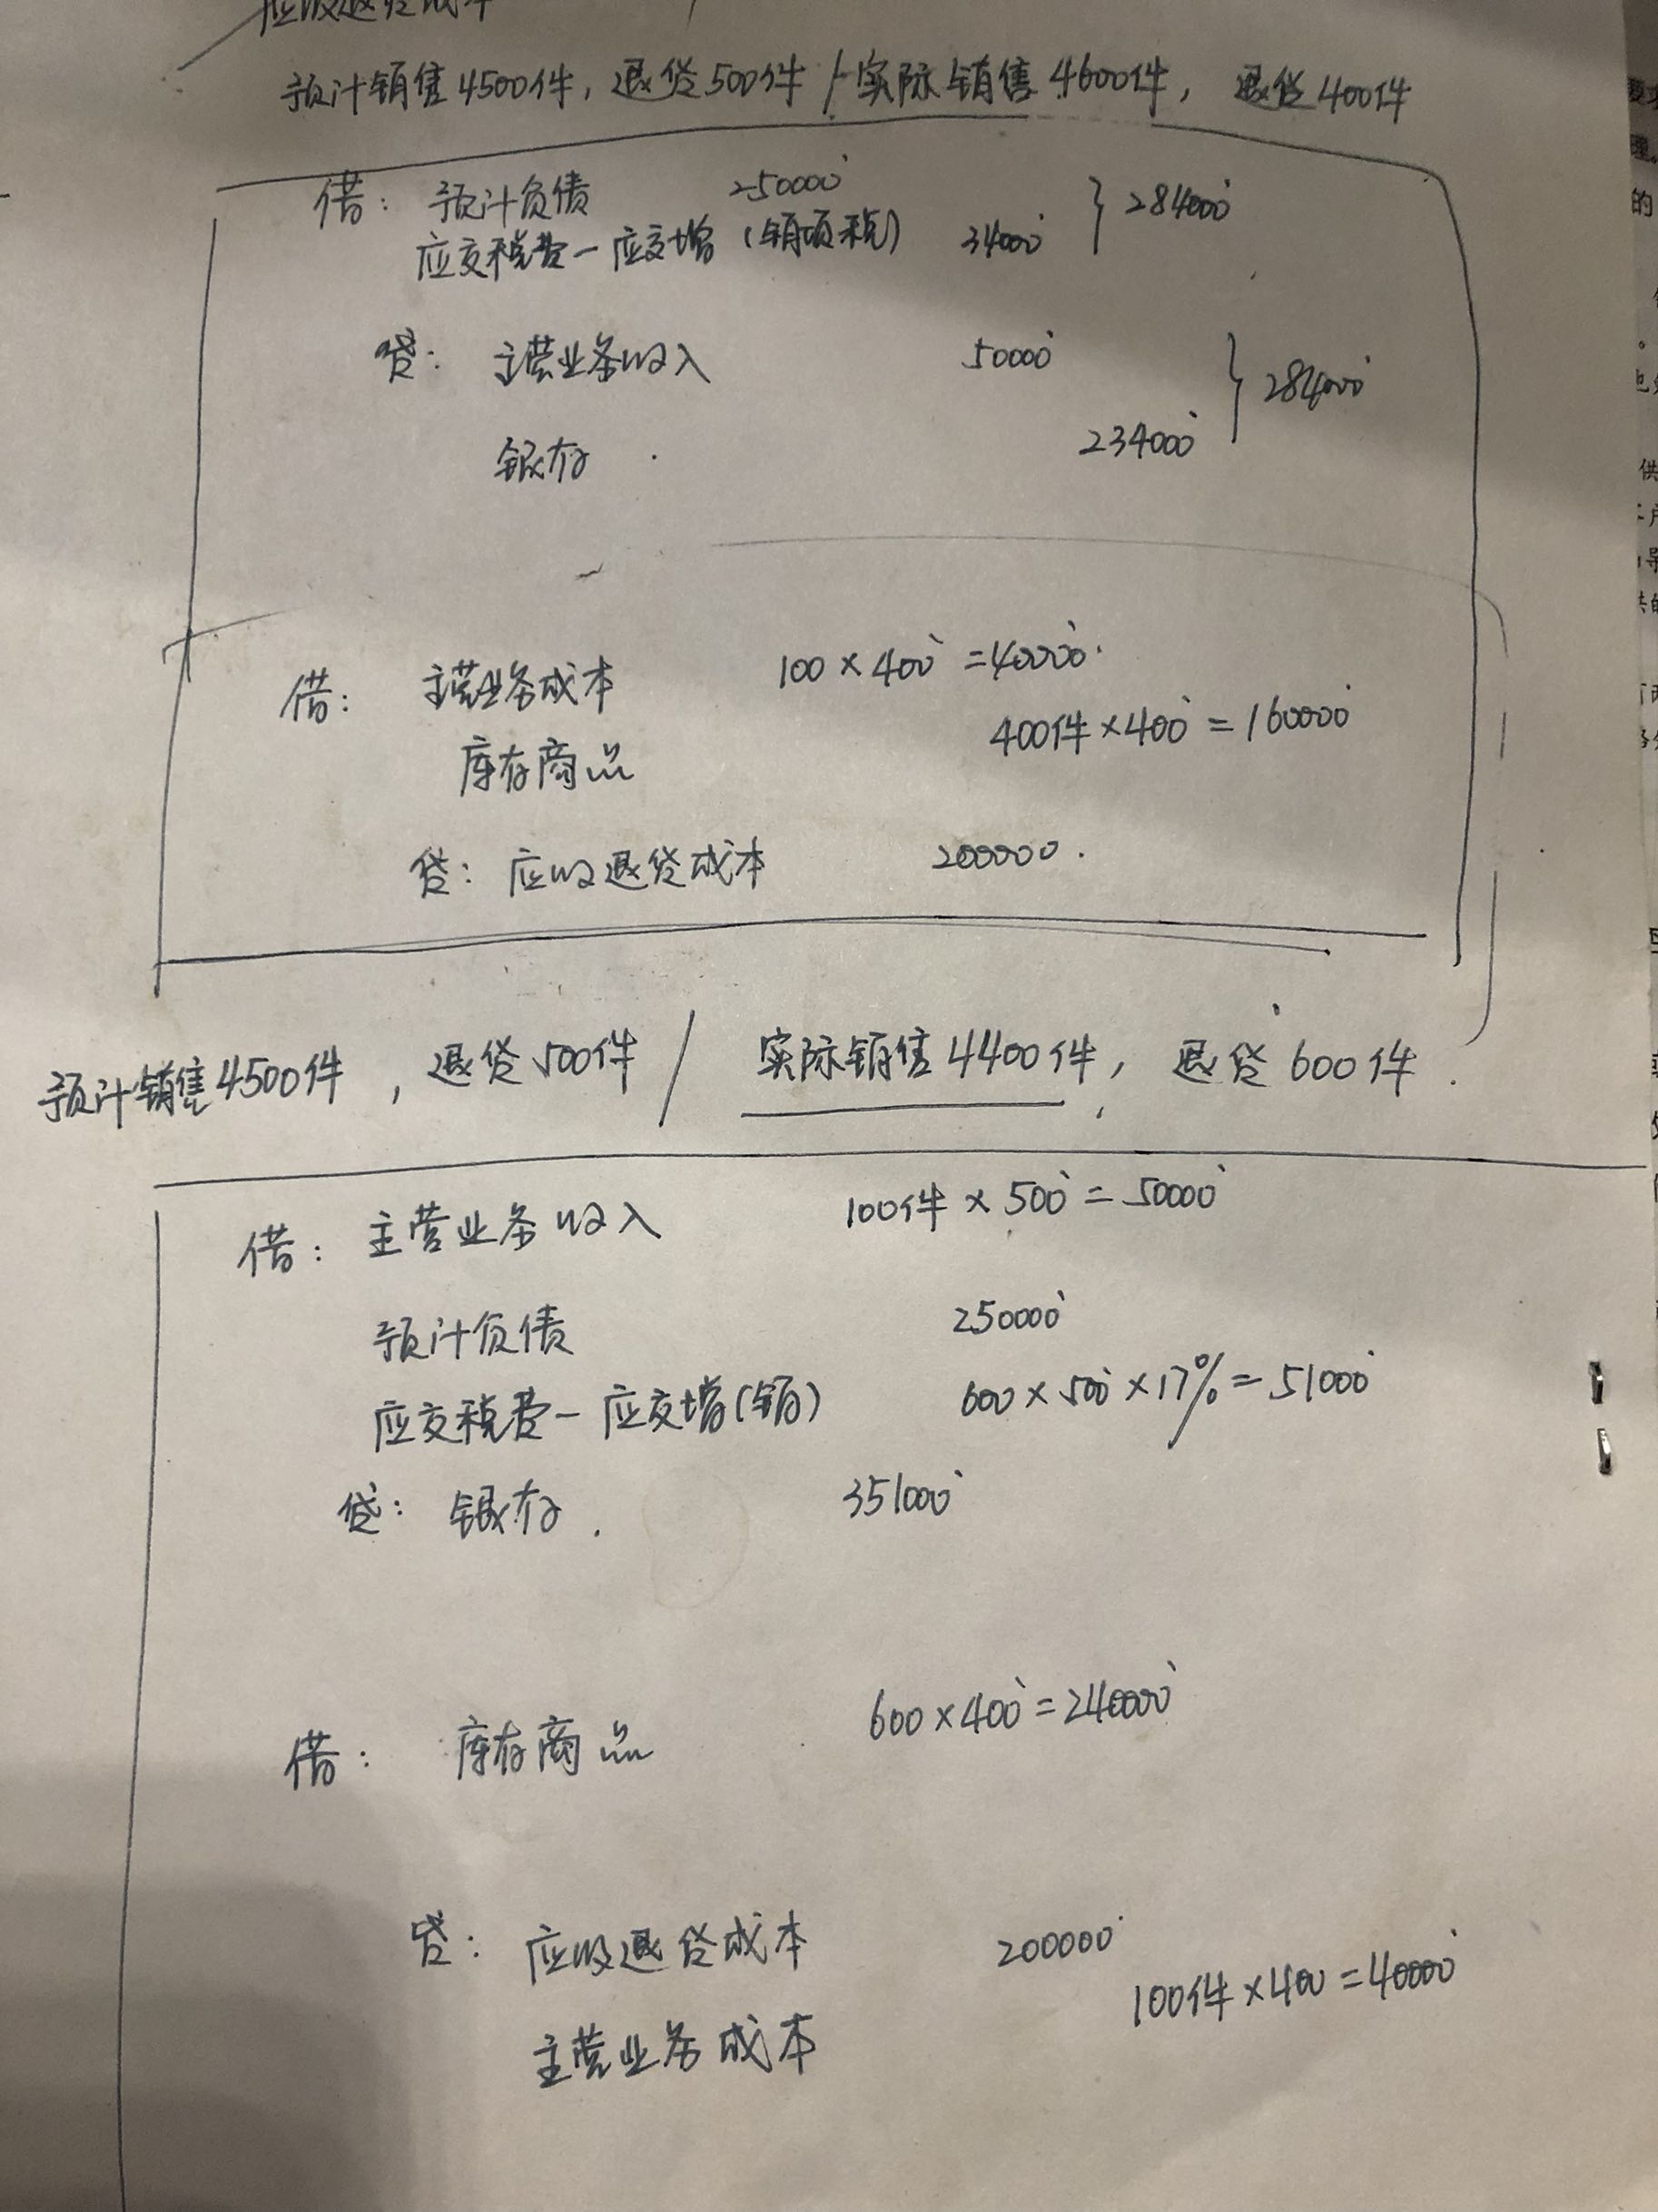 应收退货成本
预计销售4500件，退货500件 / 实际销售4600件，退货400件
借： 预计负债 250000 } 284000
应交税费一应交增（销项税） 34000
贷： 主营业务收入 50000 } 284000
银存 234000
借： 主营业务成本 100×400=40000
库存商品 400件×400=160000
贷：应收退货成本 200000.
预计销售4500件，退货500件 / 实际销售4400件，退货600件.
借： 主营业务收入 100件×500=50000
预计负债 250000
应交税费一应交增(销) 600×500×17%=51000
贷： 银存. 351000
借： 库存商品 600×400=240000
贷： 应收退货成本 200000
主营业务成本 100件×400=40000